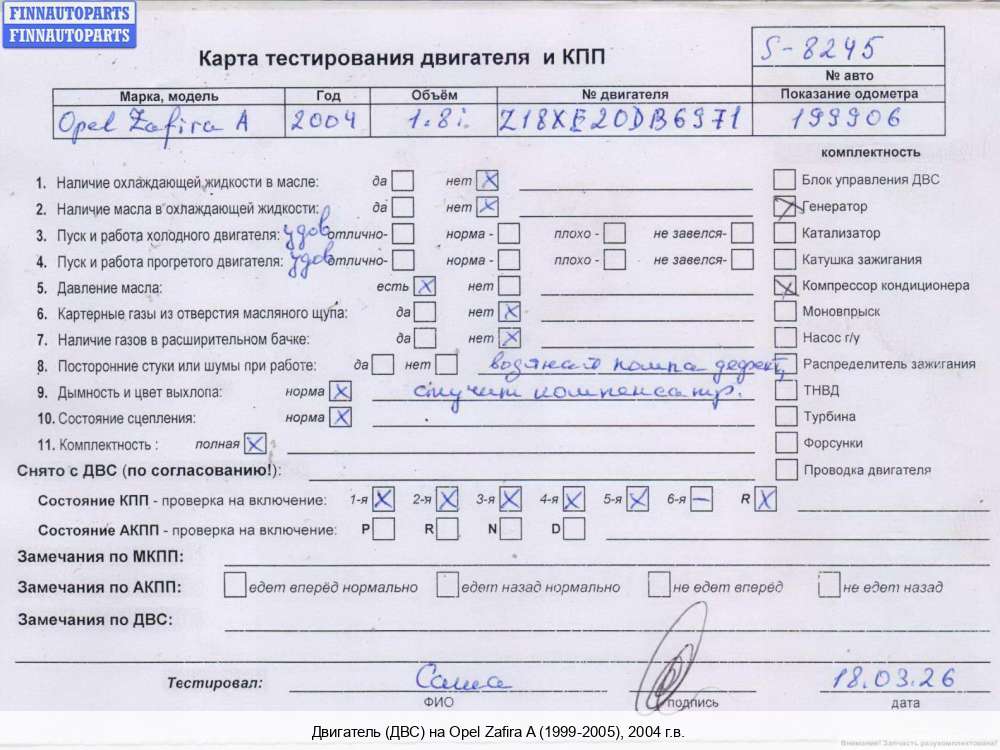 FINNAUTOPARTS
FINNAUTOPARTS
Карта тестирования двигателя и КПП
S-8245
№ авто
Марка, модель Год Объём № двигателя Показание одометра
Opel Zafira A 2004 1.8i Z18XE20DB6971 199906
комплектность
1. Наличие охлаждающей жидкости в масле: да нет X Блок управления ДВС
2. Наличие масла в охлаждающей жидкости: да нет X Генератор
3. Пуск и работа холодного двигателя: удов отлично- норма - плохо - не завелся- Катализатор
4. Пуск и работа прогретого двигателя: удов отлично- норма - плохо - не завелся- Катушка зажигания
5. Давление масла: есть X нет Компрессор кондиционера
6. Картерные газы из отверстия масляного щупа: да нет X Моновпрыск
7. Наличие газов в расширительном бачке: да нет X Насос г/у
8. Посторонние стуки или шумы при работе: да нет помпа дефект Распределитель зажигания
9. Дымность и цвет выхлопа: норма X стучит компенсатр. ТНВД
10. Состояние сцепления: норма X Турбина
11. Комплектность : полная X Форсунки
Снято с ДВС (по согласованию!): Проводка двигателя
Состояние КПП - проверка на включение: 1-я X 2-я X 3-я X 4-я X 5-я X 6-я – R X
Состояние АКПП - проверка на включение: P R N D
Замечания по МКПП:
Замечания по АКПП: едет вперёд нормально едет назад нормально не едет вперёд не едет назад
Замечания по ДВС:
Тестировал: Саша 18.03.26
ФИО подпись дата
Двигатель (ДВС) на Opel Zafira A (1999-2005), 2004 г.в.
Внимание! Запчасть разукомплектована!